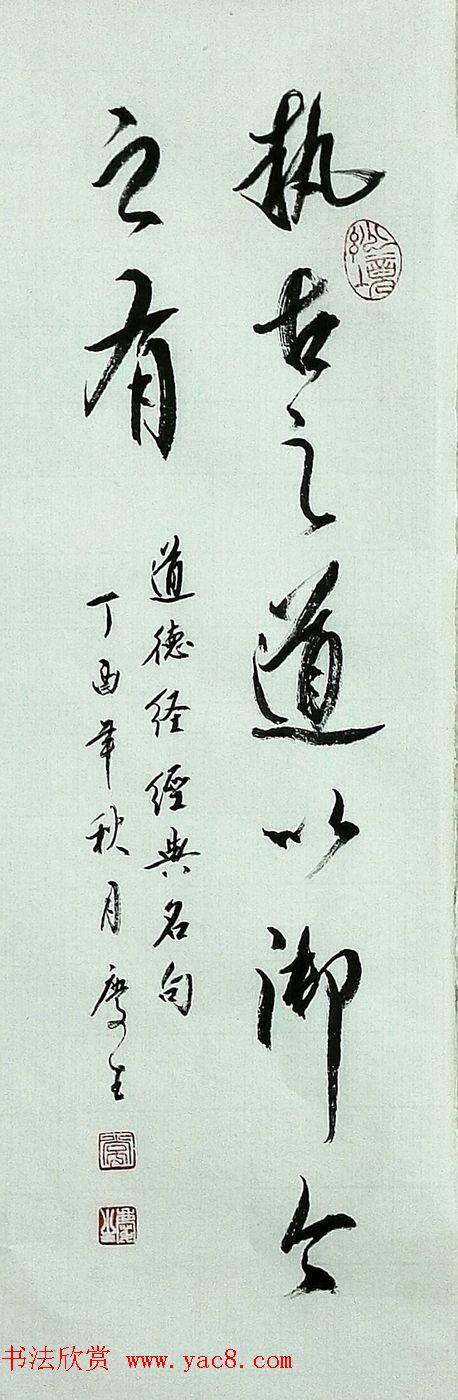 执古之道以御今
之有
道德经經典名句
丁酉年秋月庆生
书法欣赏 www.yac8.com